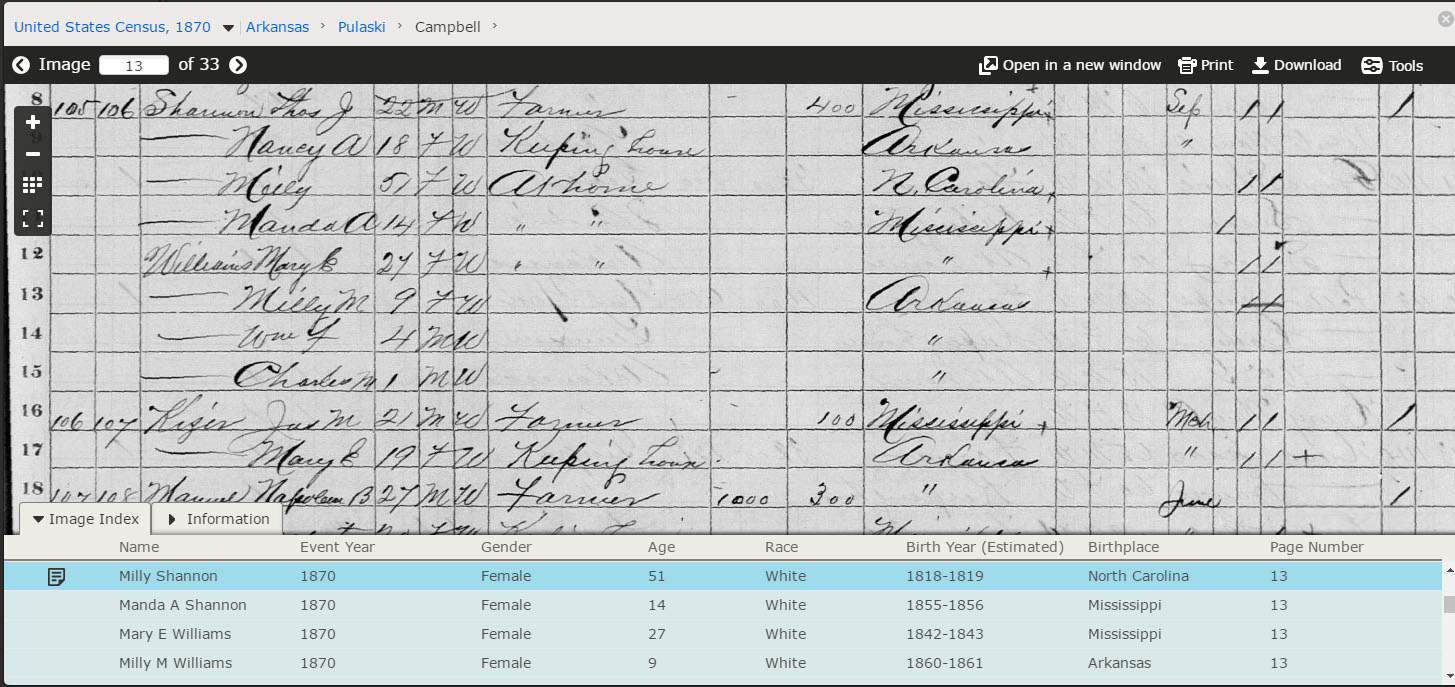 United States Census, 1870 Arkansas › Pulaski › Campbell ›
Image 13 of 33 Open in a new window Print Download Tools
8 105 106 Shannon Thos J 22 M W Farmer - 400 Mississippi Sep 1 1 1
—— Nancy A 18 F W Keeping house Arkansas "
—— Milly 51 F W At home N. Carolina 1 1
—— Manda A 14 F W " " Mississippi 1
12 Williams Mary E 27 F W " " " 1 1
13 —— Milly M 9 F W Arkansas
14 —— Wm F 4 M W "
15 —— Charles M 1 M W "
16 106 107 Kiger Jas M 21 M W Farmer 100 Mississippi Mch 1 1 1
17 —— Mary E 19 F W Keeping house Arkansas " 1 1 +
18 107 108 Manuel Napoleon B 27 M W Farmer 1000 300 " June 1
Image Index Information
Name Event Year Gender Age Race Birth Year (Estimated) Birthplace Page Number
Milly Shannon 1870 Female 51 White 1818-1819 North Carolina 13
Manda A Shannon 1870 Female 14 White 1855-1856 Mississippi 13
Mary E Williams 1870 Female 27 White 1842-1843 Mississippi 13
Milly M Williams 1870 Female 9 White 1860-1861 Arkansas 13